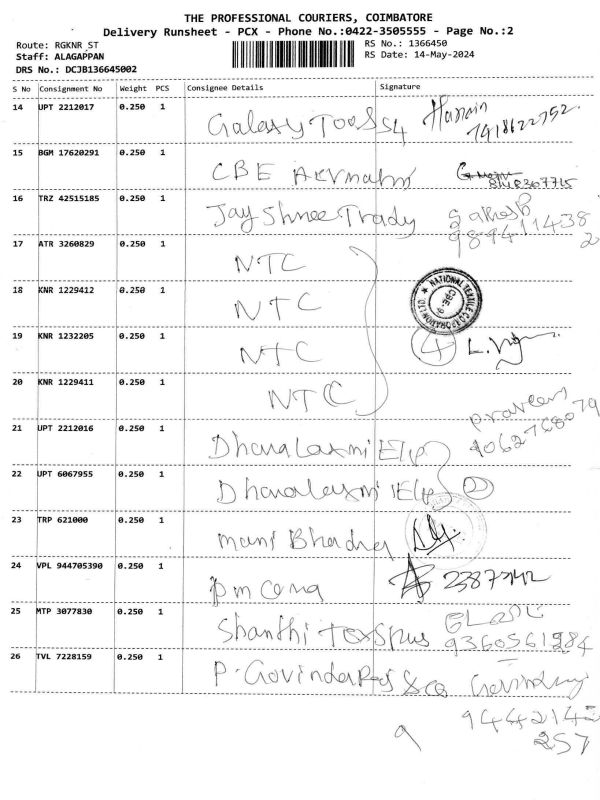 THE PROFESSIONAL COURIERS, COIMBATORE
Delivery Runsheet - PCX - Phone No.:0422-3505555 - Page No.:2
Route: RGKNR_ST RS No.: 1366450
Staff: ALAGAPPAN RS Date: 14-May-2024
DRS No.: DCJB136645002
S No Consignment No Weight PCS Consignee Details Signature
14 UPT 2212017 0.250 1 Galaxy Tools
15 BGM 17620291 0.250 1 CBE
16 TRZ 42515185 0.250 1 Jay Shree Trady
17 ATR 3260829 0.250 1 NTC
18 KNR 1229412 0.250 1 NTC
NATIONAL TEXTILE CORPORATION LTD
CBE-9
19 KNR 1232205 0.250 1 NTC 4
20 KNR 1229411 0.250 1 NTC
praveen
21 UPT 2212016 0.250 1 Dhanalaxmi
22 UPT 6067955 0.250 1 Dhanalaxmi 2
23 TRP 621000 0.250 1 mani Bhadra
24 VPL 944705390 0.250 1 pm 2387342
25 MTP 3077830 0.250 1 Shanthi
9360561984
26 TVL 7228159 0.250 1 P. Govindaraj & co
9442142
257
9